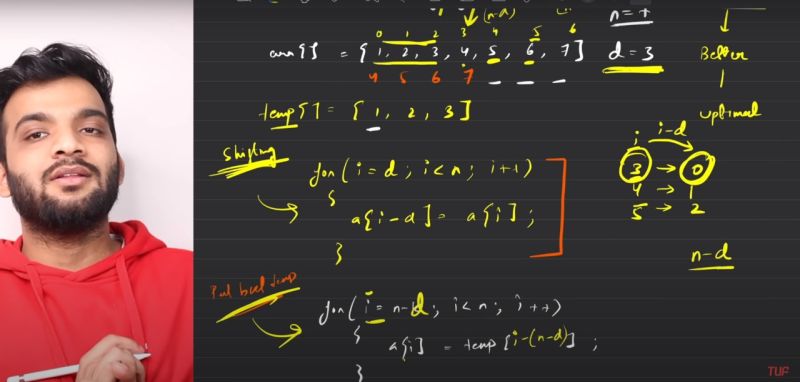 (n-d)
n = 7
0 1 2 3 4 5 6
arr[] = {1, 2, 3, 4, 5, 6, 7}
d = 3
Better
4 5 6 7 _ _ _
temp[] = [1, 2, 3]
optimal
i i-d
Shifting
for(i = d; i < n; i++)
3 → 0
{
4 → 1
a[i-d] = a[i];
5 → 2
}
n-d
Put back temp
for(i = n-d; i < n; i++)
{
a[i] = temp[i-(n-d)];
}
TUF